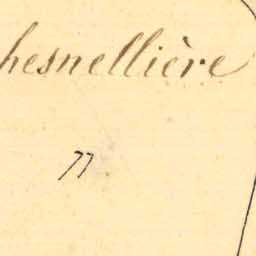 hesnellière
77